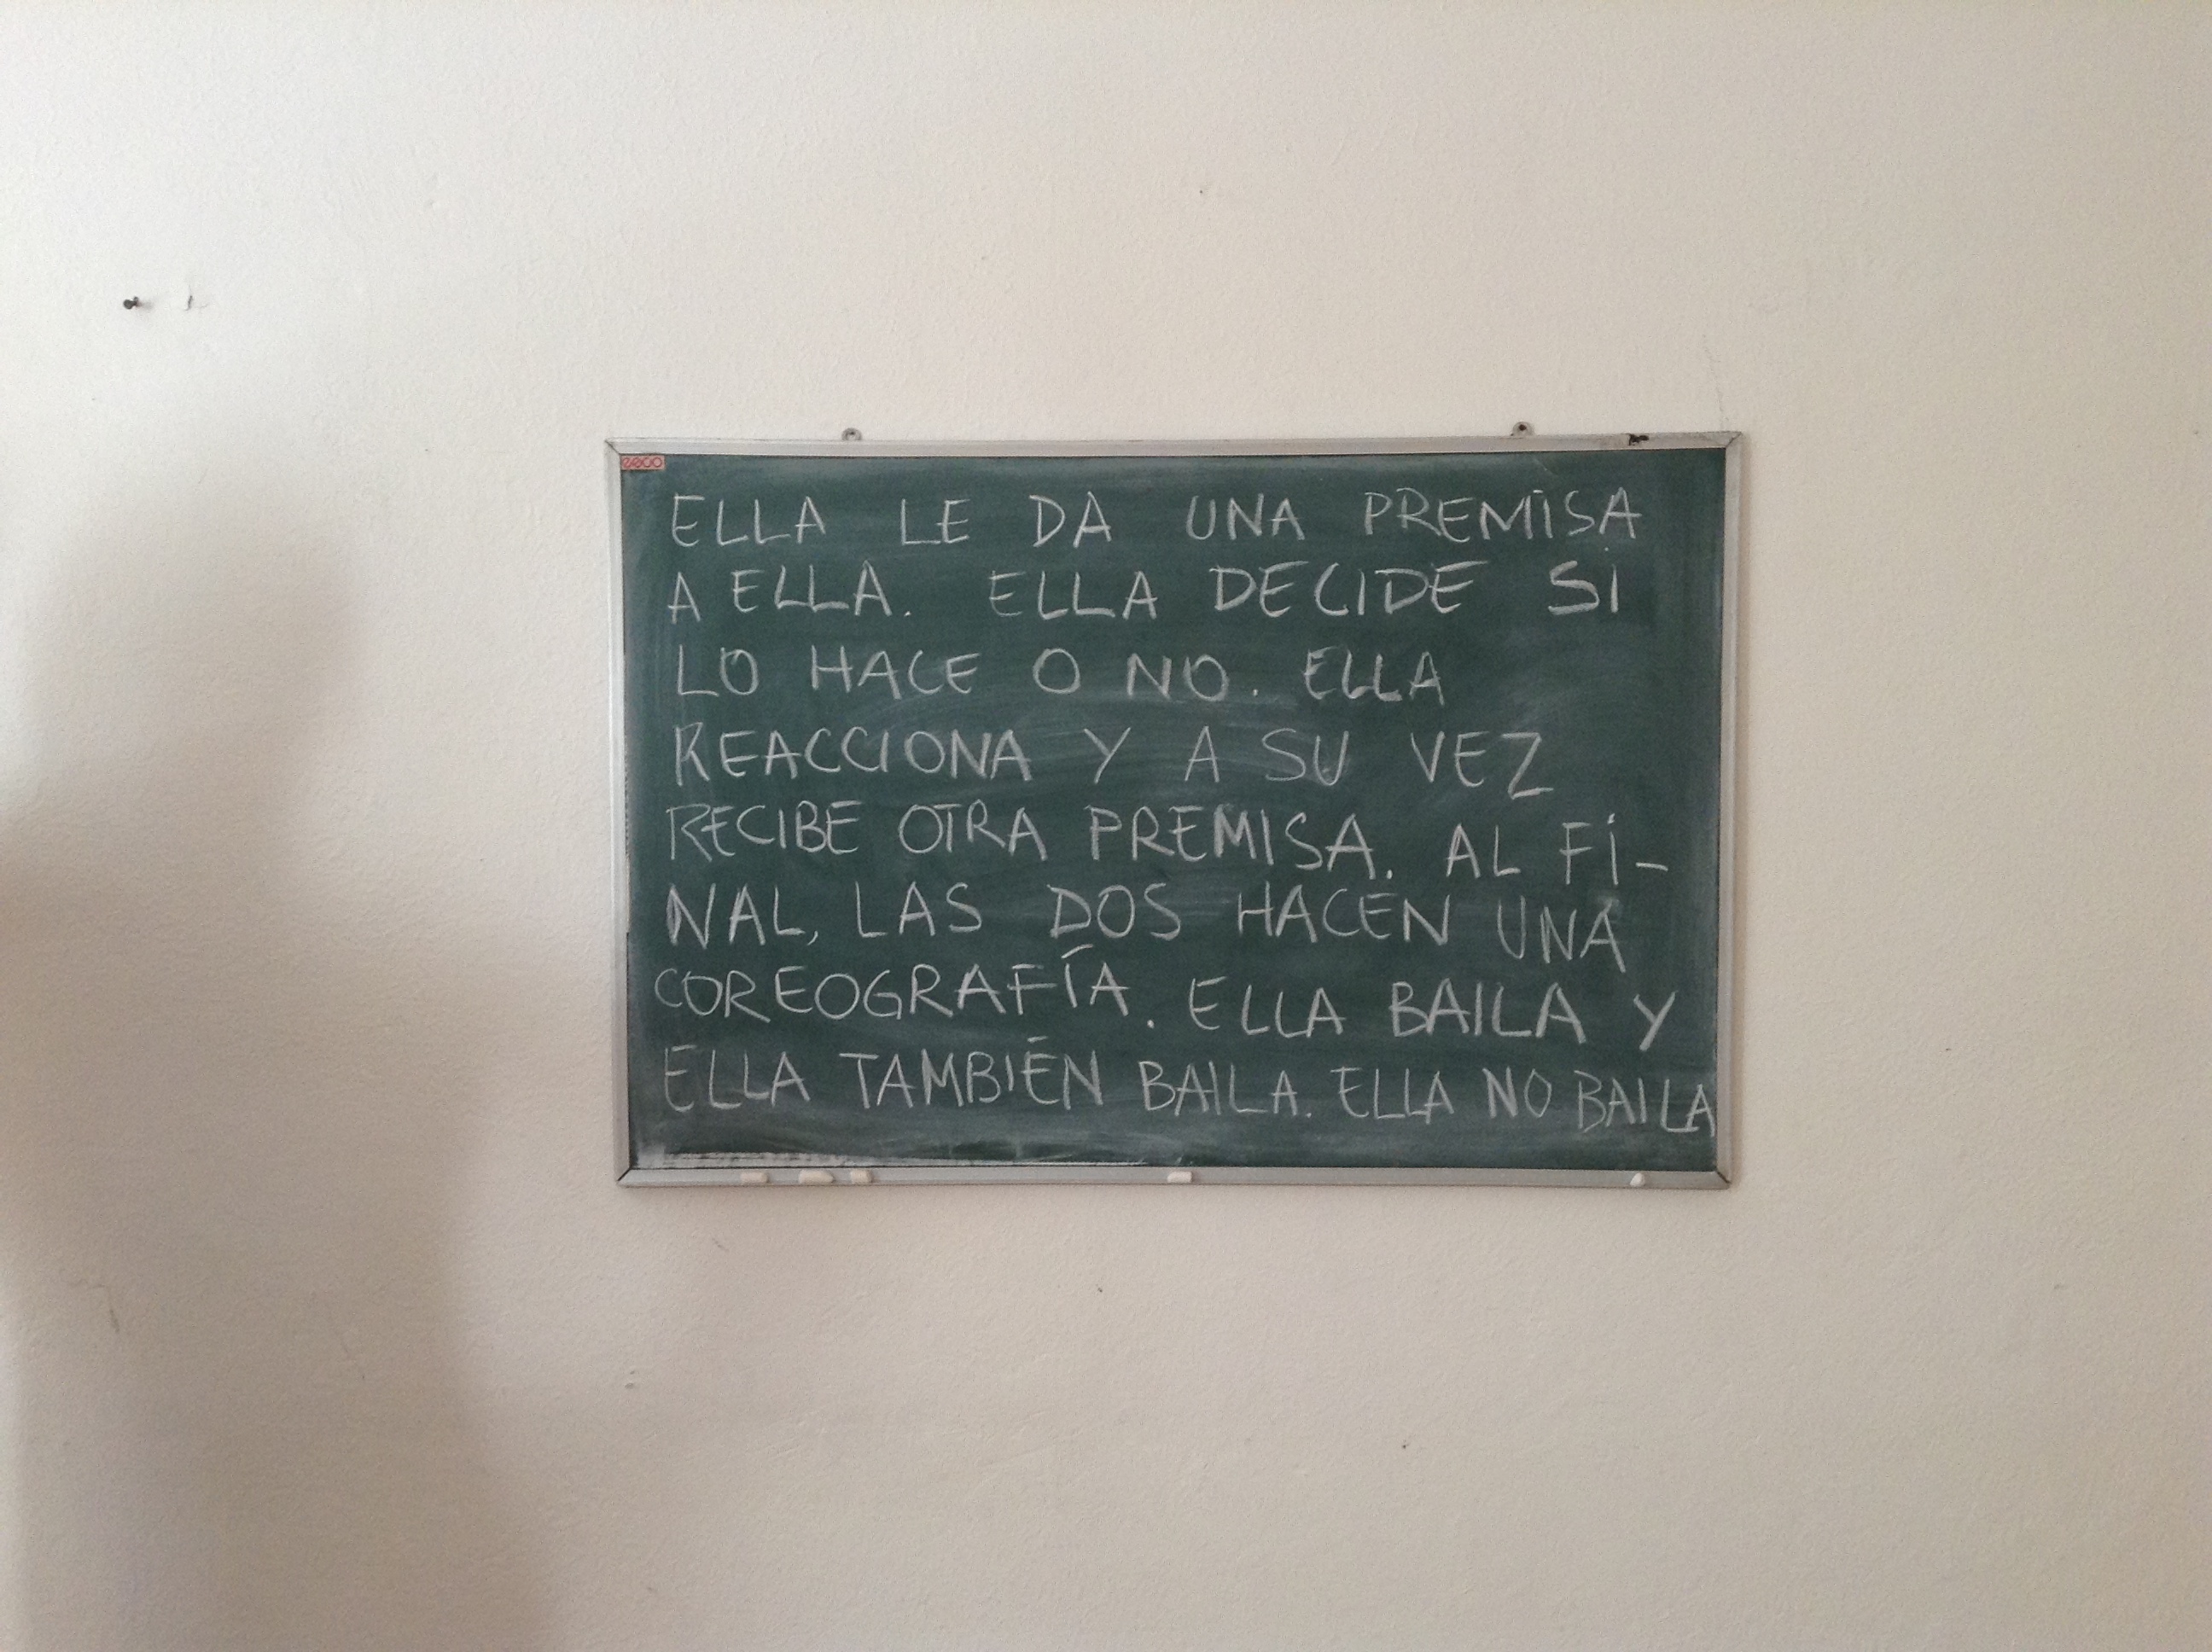 ELLA LE DA UNA PREMISA
A ELLA. ELLA DECIDE SI
LO HACE O NO. ELLA
REACCIONA Y A SU VEZ
RECIBE OTRA PREMISA. AL FI-
NAL, LAS DOS HACEN UNA
COREOGRAFÍA. ELLA BAILA Y
ELLA TAMBIÉN BAILA. ELLA NO BAILA